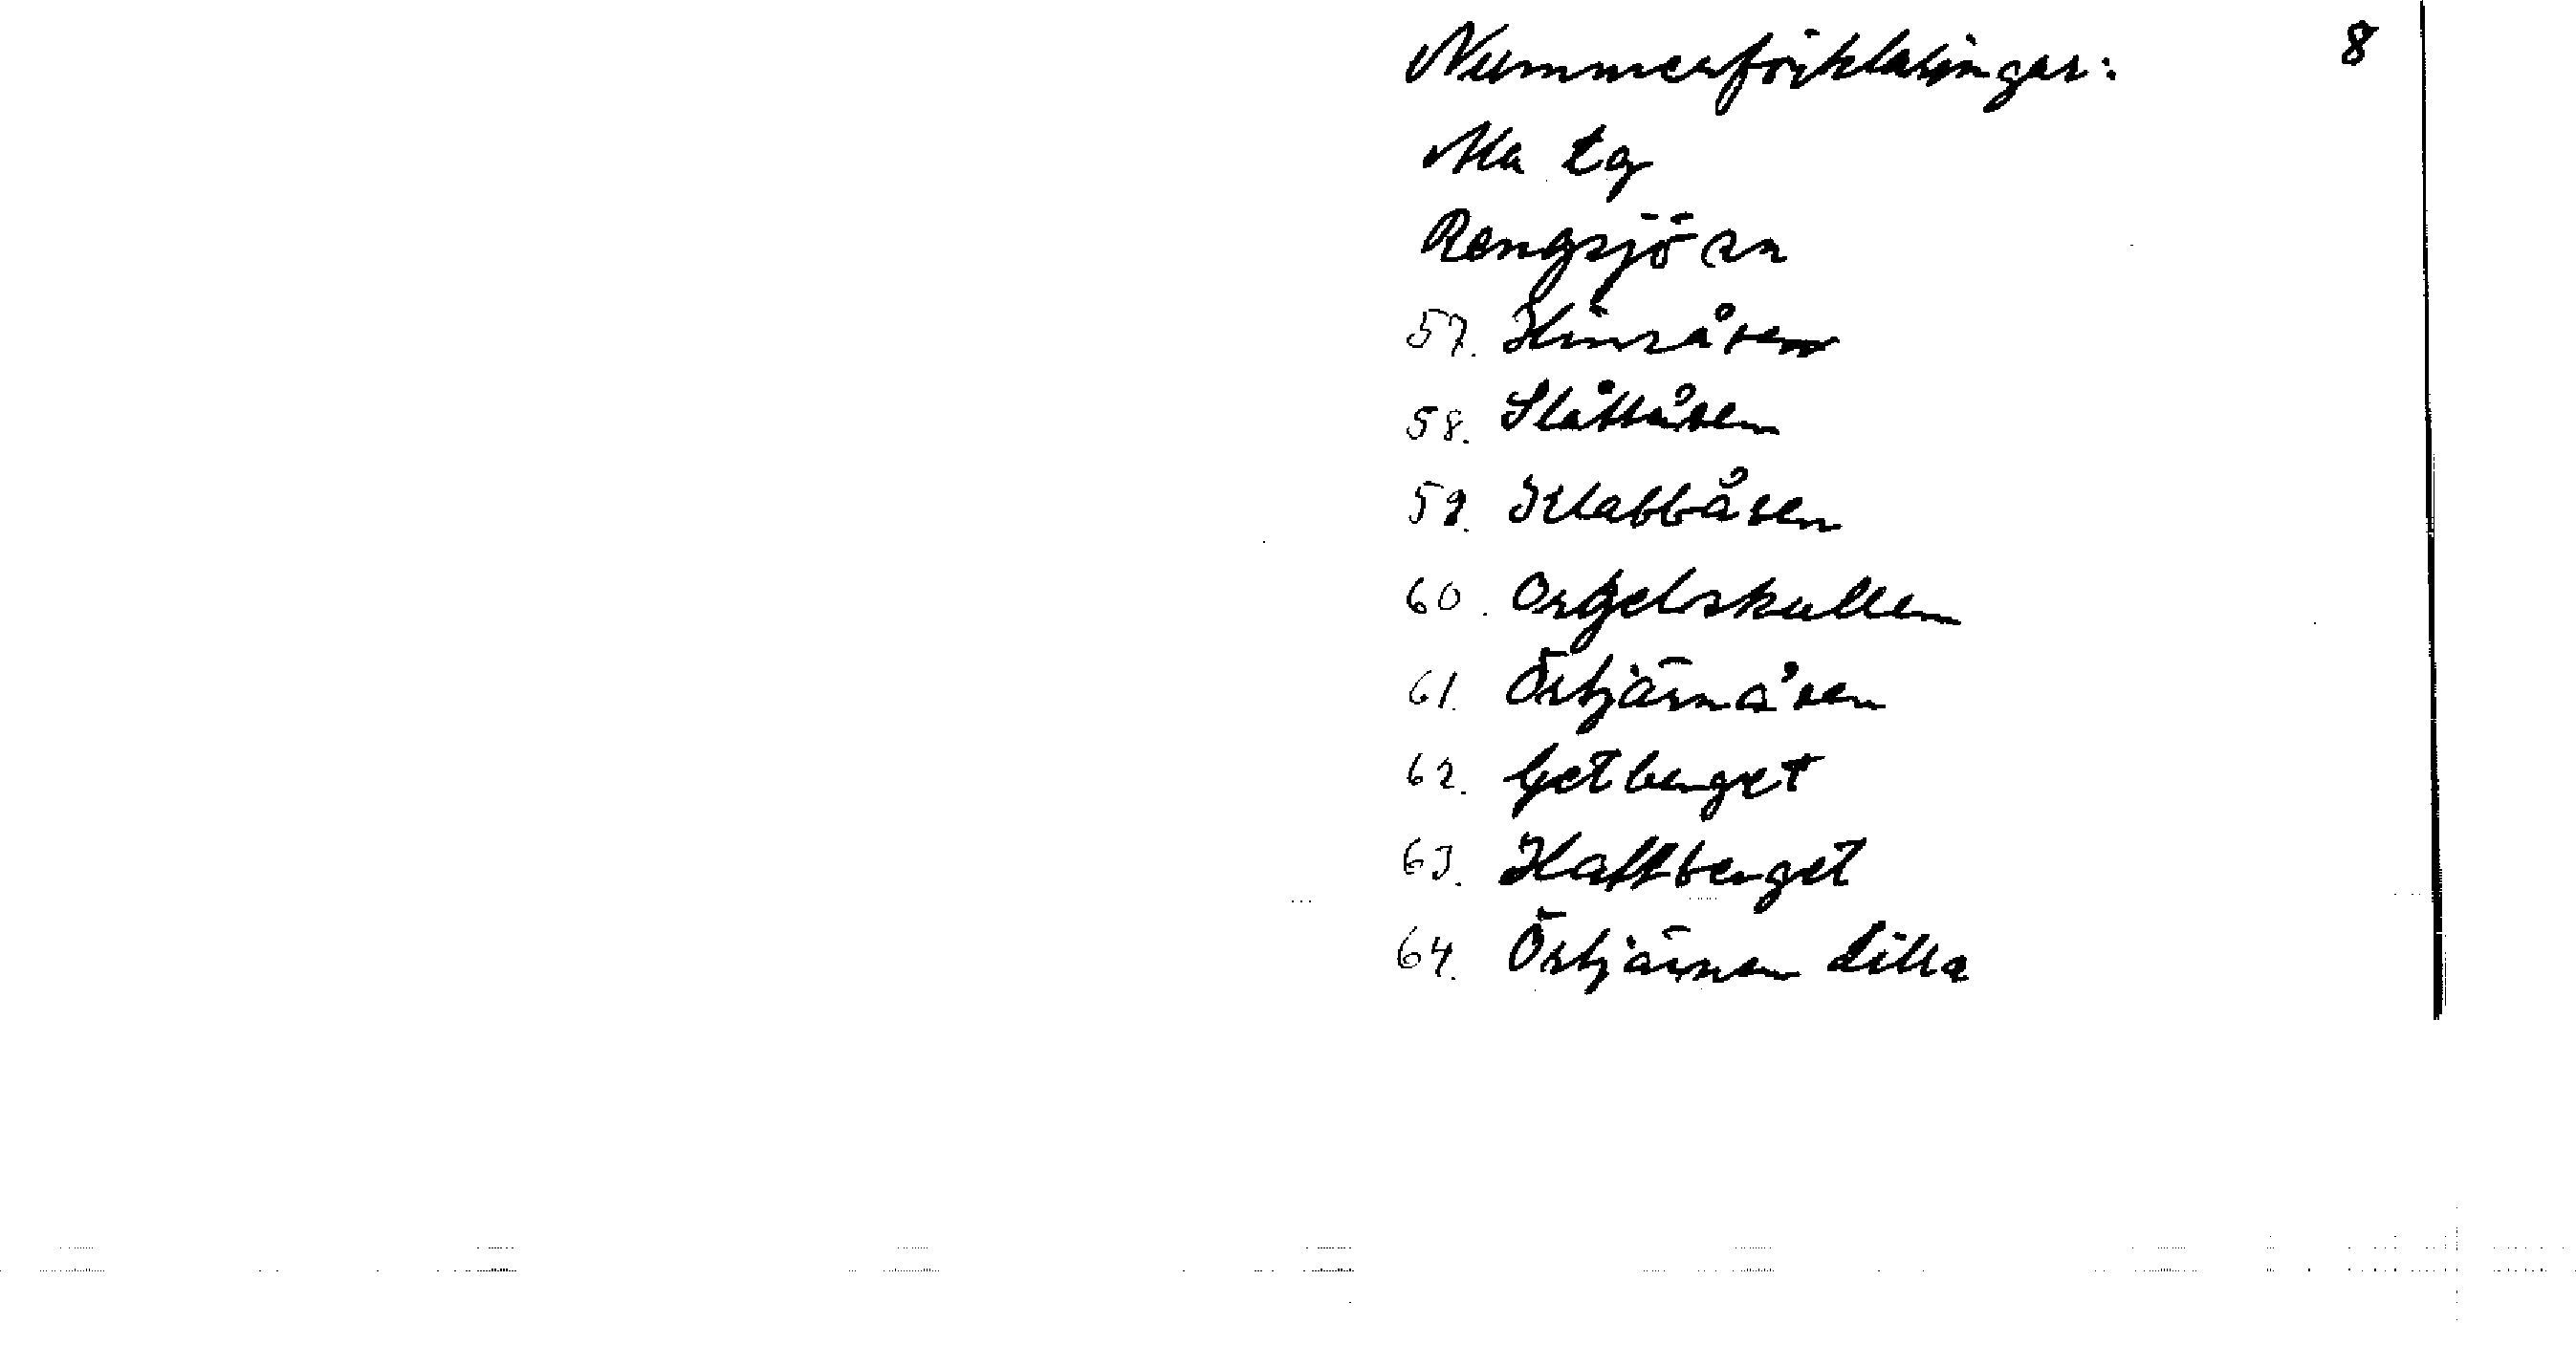 Nummerförklaringar: 8
Ala tg
Rengsjö sn
57. Hinsåsen
58. Slåttåsen
59. Klabbåsen
60. Orgelnskullen
61. Örtjärnåsen
62. Getberget
63. Kattberget
64. Örtjärnen Lilla